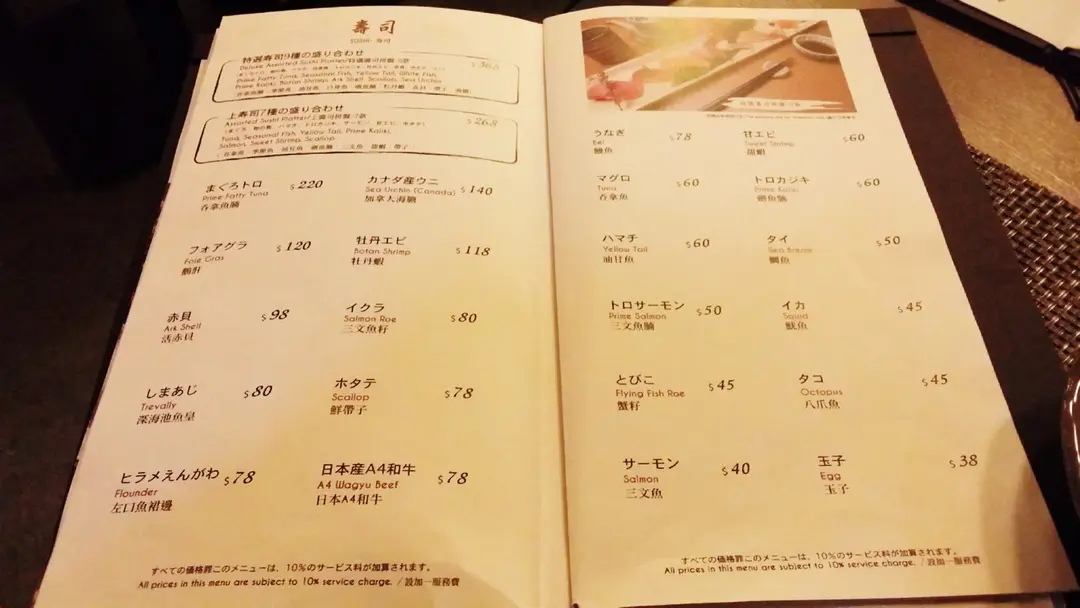 壽司
SUSHI · 寿司
特選寿司9種の盛り合わせ
Deluxe Assorted Sushi Platter/特選壽司拼盤 9款
$368
Prime Fatty Tuna, Seasonal Fish, Yellow Tail, White Fish,
Prime Kajiki, Botan Shrimp, Ark Shell, Scallop, Sea Urchin
上寿司7種の盛り合わせ
Assorted Sushi Platter/上壽司拼盤 7款
$268
Tuna, Seasonal Fish, Yellow Tail, Prime Kajiki,
Salmon, Sweet Shrimp, Scallop
まぐろトロ $220
Prime Fatty Tuna
吞拿魚腩
カナダ産ウニ $140
Sea Urchin (Canada)
加拿大海膽
フォアグラ $120
Foie Gras
鵝肝
牡丹エビ $118
Botan Shrimp
牡丹蝦
赤貝 $98
Ark Shell
活赤貝
イクラ $80
Salmon Roe
三文魚籽
しまあじ $80
Trevally
深海池魚皇
ホタテ $78
Scallop
鮮帶子
ヒラメえんがわ $78
Flounder
左口魚裙邊
日本産A4和牛 $78
A4 Wagyu Beef
日本A4和牛
すべての価格罪このメニューは、10%のサービス料が加算されます。
All prices in this menu are subject to 10% service charge. / 設加一服務費
うなぎ $78
Eel
鰻魚
甘エビ $60
Sweet Shrimp
甜蝦
マグロ $60
Tuna
吞拿魚
トロカジキ $60
Prime Kajiki
劍魚腩
ハマチ $60
Yellow Tail
油甘魚
タイ $50
Sea Bream
鯛魚
トロサーモン $50
Prime Salmon
三文魚腩
イカ $45
Squid
魷魚
とびこ $45
Flying Fish Roe
蟹籽
タコ $45
Octopus
八爪魚
サーモン $40
Salmon
三文魚
玉子 $38
Egg
玉子
すべての価格罪このメニューは、10%のサービス料が加算されます。
All prices in this menu are subject to 10% service charge. / 設加一服務費